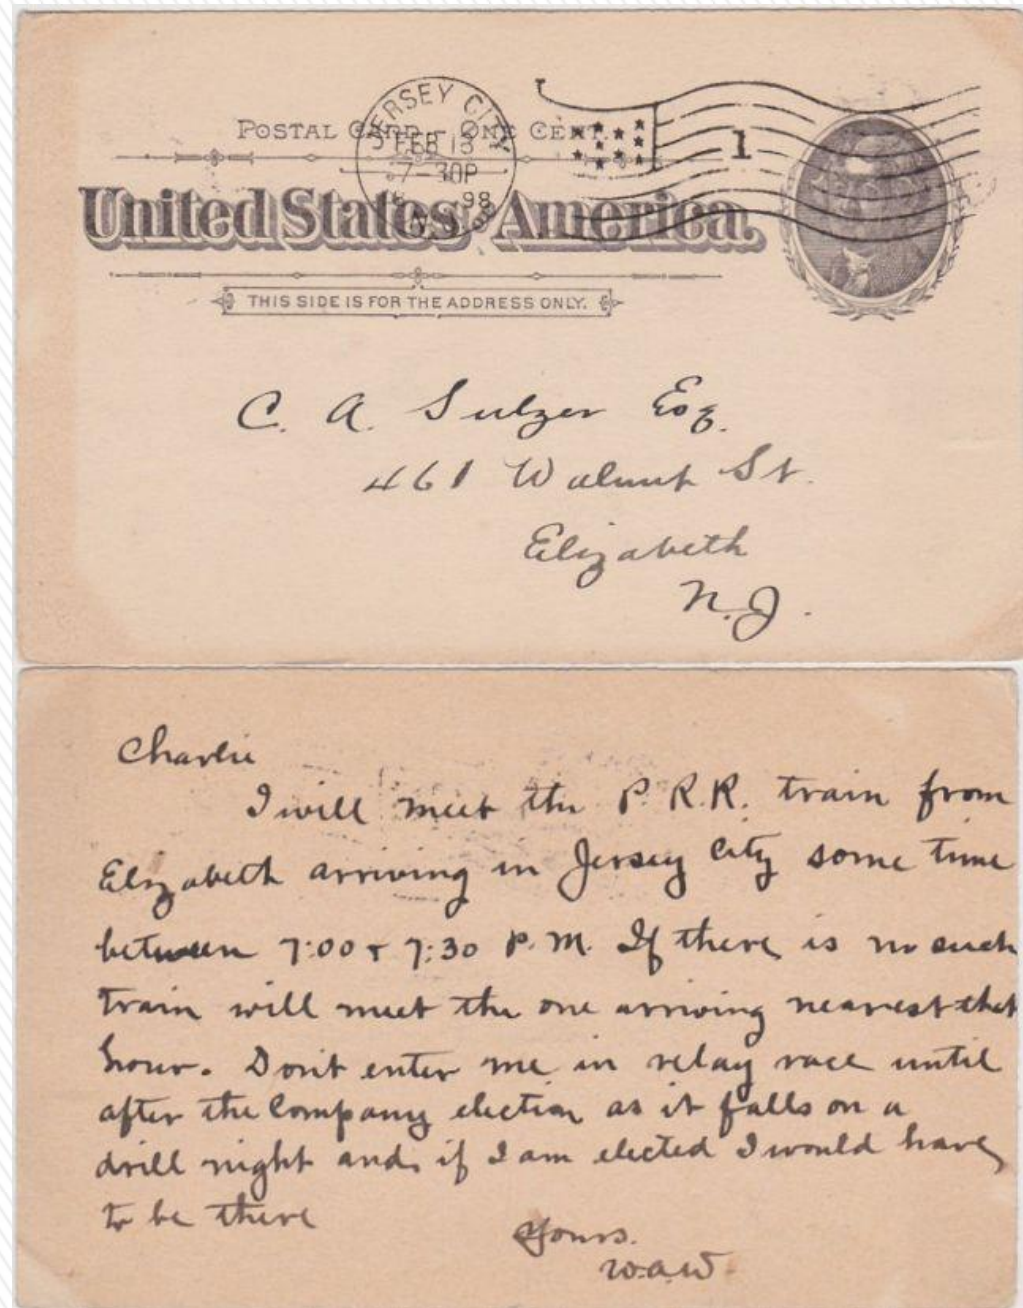 POSTAL CARD – ONE CENT.
JERSEY CITY
FEB 13
7-30P
98
1
United States America.
THIS SIDE IS FOR THE ADDRESS ONLY.
C. A. Sulzer Esq.
461 Walnut St.
Elizabeth
N.J.
Charlie
I will meet the P.R.R. train from
Elizabeth arriving in Jersey City some time
between 7:00 & 7:30 P.M. If there is no such
train will meet the one arriving nearest that
hour. Don't enter me in relay race until
after the Company election as it falls on a
drill night and if I am elected I would have
to be there
Yours.
W.A.W.